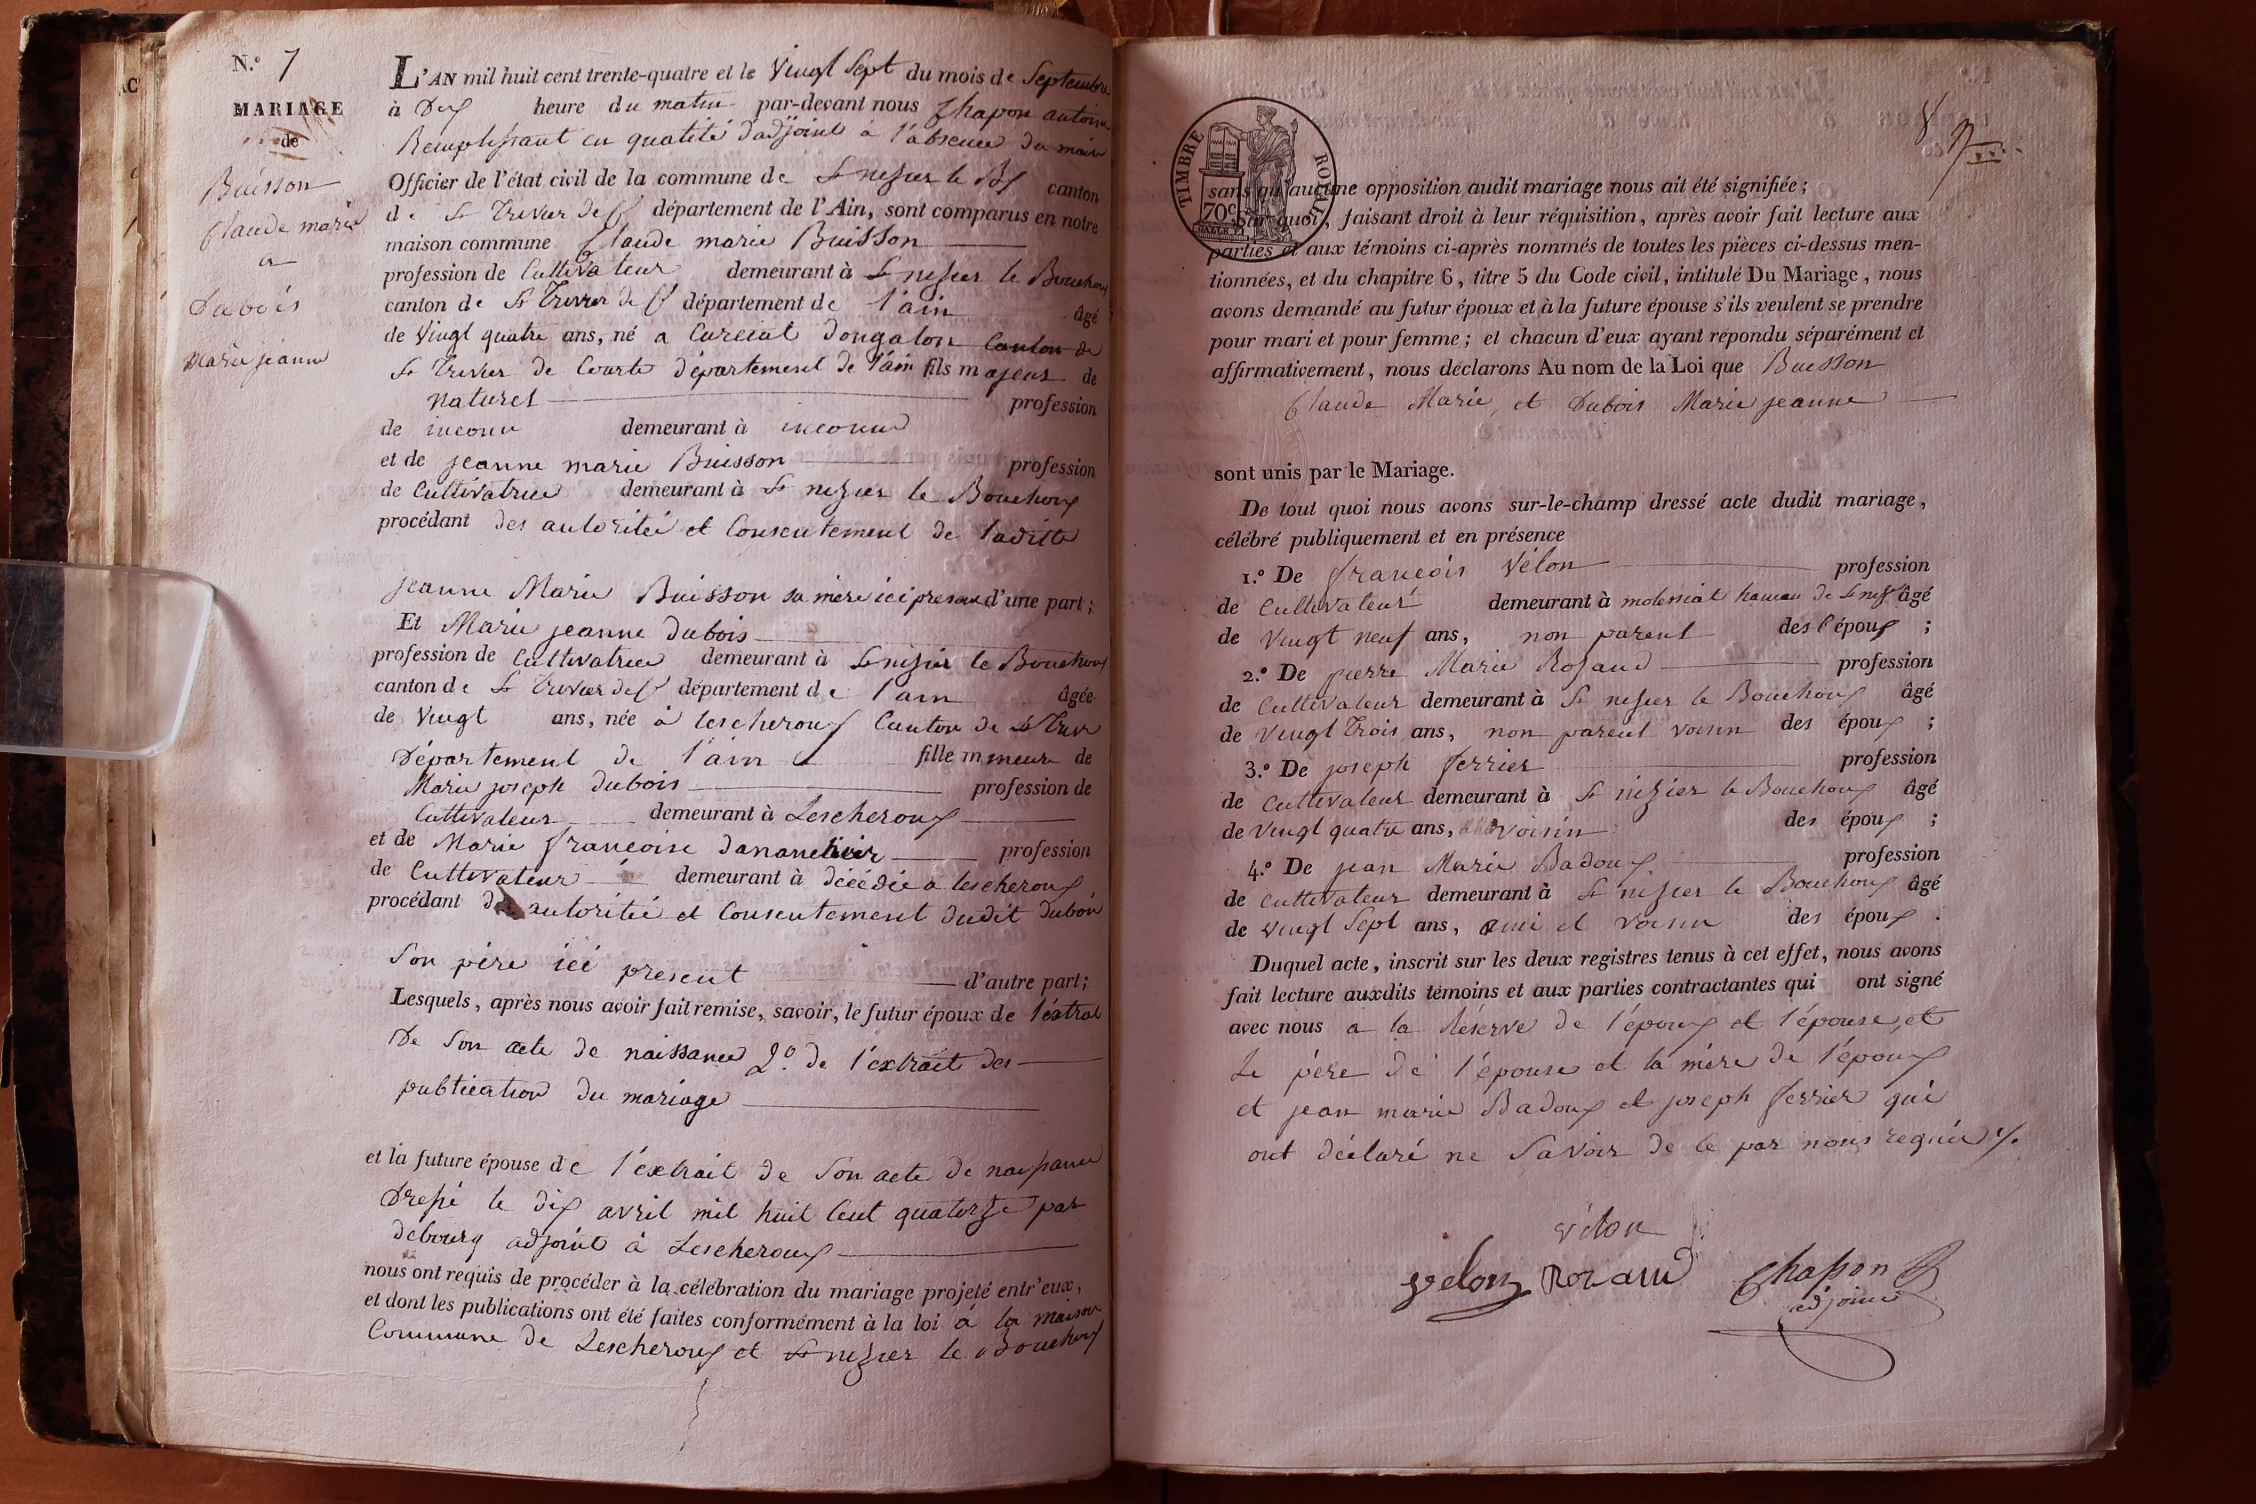 N.º 7
MARIAGE
de
Buisson
Claude marie
et
Dubois
Marie jeanne
L'AN mil huit cent trente-quatre et le Vingt Sept du mois de Septembre
à Dix heure du matin par-devant nous Chapon antoine
Remplissant en qualité d'adjoint à l'absence du maire
Officier de l'état civil de la commune de St nesier le Bx canton
de St Trevier de Cx département de l'Ain, sont comparus en notre
maison commune Claude marie Buisson
profession de Cultivateur demeurant à St nesier le Bouchoux
canton de St Trevier de Cx département de l'ain âgé
de Vingt quatre ans, né a Curciat dongalon Canton de
St Trevier de Courte département de l'ain fils majeur de
naturel profession
de inconu demeurant à inconnu
et de jeanne marie Buisson profession
de Cultivatrice demeurant à St nezier le Bouchoux
procédant des autorité et Consentement de ladite
jeanne Marie Buisson sa mère ici presente d'une part;
Et Marie jeanne dubois
profession de Cultivatrice demeurant à St nizier le Bouchoux
canton de St Trevier de Cx département de l'ain âgée
de Vingt ans, née à lescheroux Canton de St Trivr
Département de l'ain fille mineure de
Marie joseph dubois profession de
Cultivateur demeurant à Lescheroux
et de Marie francoise dananchier profession
de Cultivateur demeurant à décédée a lescheroux
procédant des autorité et Consentement dudit dubois
Son père ici present d'autre part;
Lesquels, après nous avoir fait remise, savoir, le futur époux de l'éxtrait
De Son acte de naissance 2.º de l'extrait des
publication du mariage
et la future épouse de l'éxtrait de Son acte de naissance
Dressé le dix avril mil huit Cent quatorze par
débourg adjoint à Lescheroux
nous ont requis de procéder à la célébration du mariage projeté entr'eux,
et dont les publications ont été faites conformément à la loi à la maison
Commune de Lescheroux et St nezier le Bouchoux
TIMBRE ROYAL
70c
sans qu'aucune opposition audit mariage nous ait été signifiée;
pourquoi, faisant droit à leur réquisition, après avoir fait lecture aux
parties et aux témoins ci-après nommés de toutes les pièces ci-dessus men-
tionnées, et du chapitre 6, titre 5 du Code civil, intitulé Du Mariage, nous
avons demandé au futur époux et à la future épouse s'ils veulent se prendre
pour mari et pour femme; et chacun d'eux ayant répondu séparément et
affirmativement, nous déclarons Au nom de la Loi que Buisson
Claude Marie, et Dubois Marie jeanne
sont unis par le Mariage.
De tout quoi nous avons sur-le-champ dressé acte dudit mariage,
célébré publiquement et en présence
1.º De françois Vélon profession
de Cultivateur demeurant à molissiat hameau de St nesr âgé
de Vingt neuf ans, non parent des époux;
2.º De pierre Marie Rozand profession
de Cultivateur demeurant à St nesier le Bouchoux âgé
de Vingt Trois ans, non parent voisin des époux;
3.º De joseph ferrier profession
de Cultivateur demeurant à St nizier le Bouchoux âgé
de Vingt quatre ans, voisin des époux;
4.º De jean Marie Badoux profession
de Cultivateur demeurant à St nezier le Bouchoux âgé
de Vingt Sept ans, ami et voisin des époux.
Duquel acte, inscrit sur les deux registres tenus à cet effet, nous avons
fait lecture auxdits témoins et aux parties contractantes qui ont signé
avec nous a la Réserve de l'époux et l'épouse, et
Le père de l'épouse et la mère de l'époux
et jean marie Badoux et joseph ferrier qui
ont déclaré ne Savoir de ce par nous requis
vélon
velon Rozand Chapon
adjoint